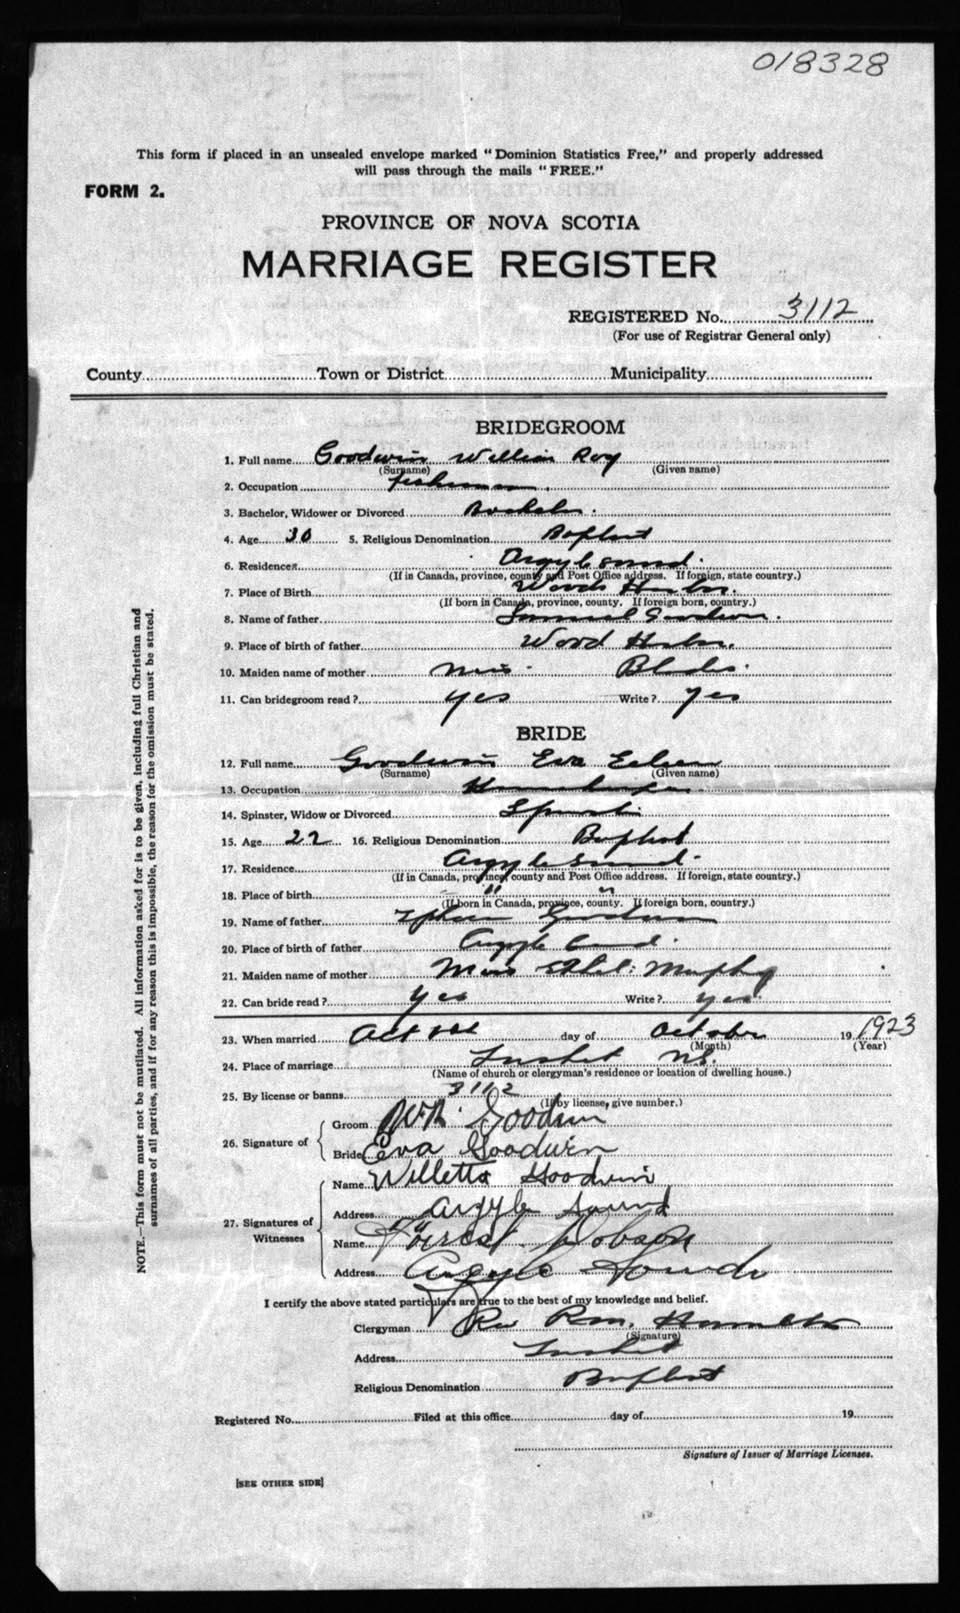 018328
This form if placed in an unsealed envelope marked "Dominion Statistics Free," and properly addressed
will pass through the mails "FREE."
FORM 2.
PROVINCE OF NOVA SCOTIA
MARRIAGE REGISTER
REGISTERED No. 3112
(For use of Registrar General only)
County Town or District Municipality
BRIDEGROOM
1. Full name Goodwin William Roy
(Surname) (Given name)
2. Occupation fisherman.
3. Bachelor, Widower or Divorced Bachelor.
4. Age 30 5. Religious Denomination Baptist
6. Residence Argyle Sound.
(If in Canada, province, county and Post Office address. If foreign, state country.)
7. Place of Birth Woods Harbor.
(If born in Canada, province, county. If foreign born, country.)
8. Name of father Samuel Goodwin.
9. Place of birth of father Wood Harbor.
10. Maiden name of mother Miss Blades.
11. Can bridegroom read? yes Write? yes
BRIDE
12. Full name Goodwin Eva Eileen
(Surname) (Given name)
13. Occupation Housekeeper
14. Spinster, Widow or Divorced Spinster
15. Age 22 16. Religious Denomination Baptist
17. Residence Argyle Sound.
(If in Canada, province, county and Post Office address. If foreign, state country.)
18. Place of birth " "
(If born in Canada, province, county. If foreign born, country.)
19. Name of father Goodwin
20. Place of birth of father Argyle Sound.
21. Maiden name of mother Miss Ethel Murphy
22. Can bride read? yes Write? yes.
23. When married Oct day of October 19 1923
(Month) (Year)
24. Place of marriage Tusket N.S.
(Name of church or clergyman's residence or location of dwelling house.)
25. By license or banns 3112
(If by license, give number.)
26. Signature of
Groom W.R. Goodwin
Bride Eva Goodwin
27. Signatures of Witnesses
Name Willetta Goodwin
Address Argyle Sound
Name Forest Hobson
Address Argyle Sound
I certify the above stated particulars are true to the best of my knowledge and belief.
Clergyman Rev Hamilton
(Signature)
Address Tusket
Religious Denomination Baptist
Registered No. Filed at this office day of 19
Signature of Issuer of Marriage Licenses.
[SEE OTHER SIDE]
NOTE.—This form must not be mutilated. All information asked for is to be given, including full Christian and
surnames of all parties, and if for any reason this is impossible, the reason for the omission must be stated.